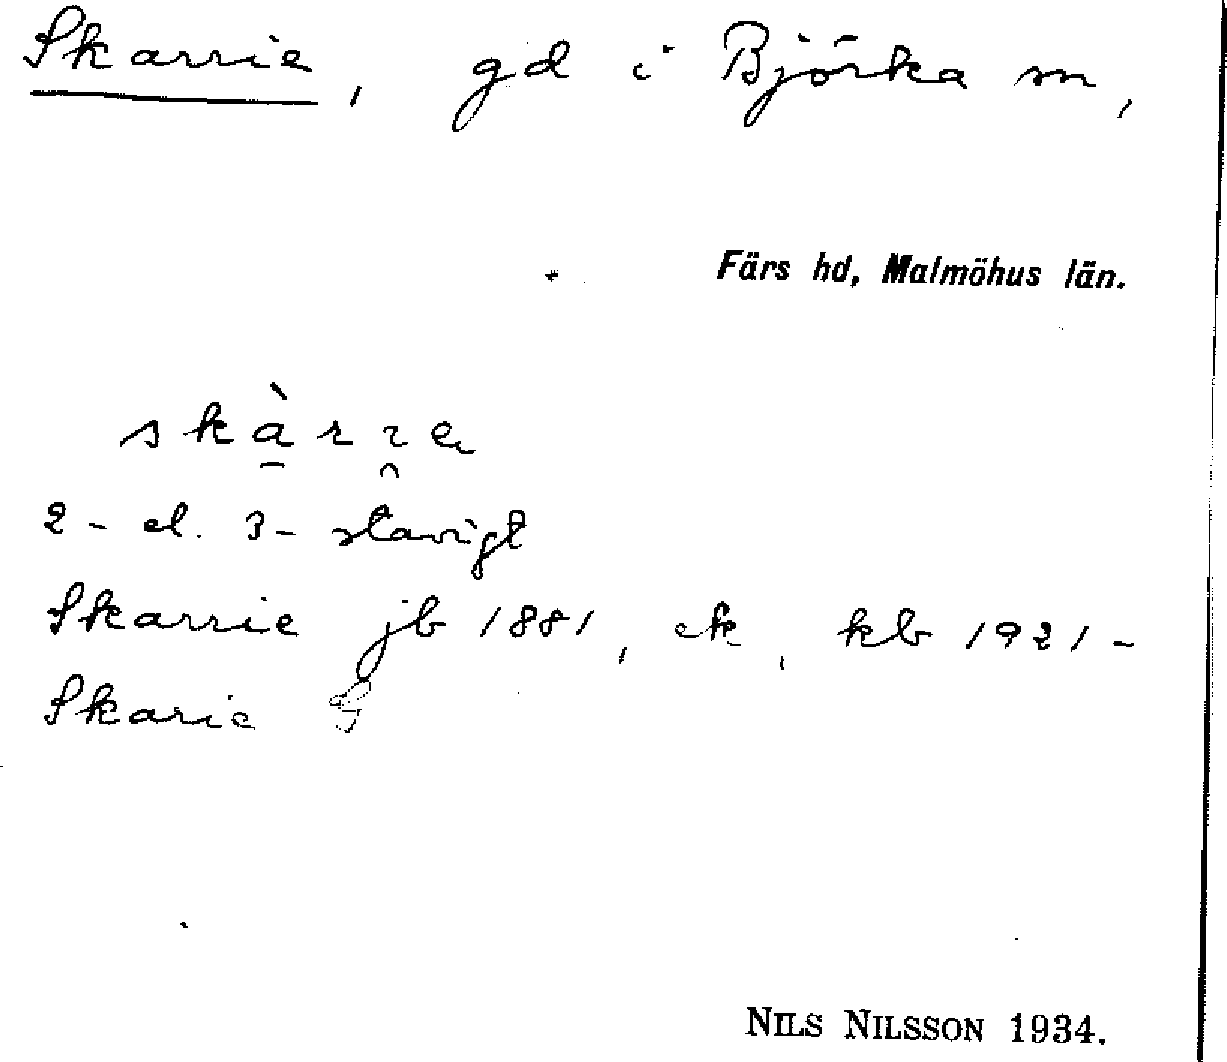 Skarrie, gd i Björka sn,
Färs hd, Malmöhus län.
2- el. 3-stavigt
Skarrie jb 1881, ek, kb 1921-
Skarie
NILS NILSSON 1934.